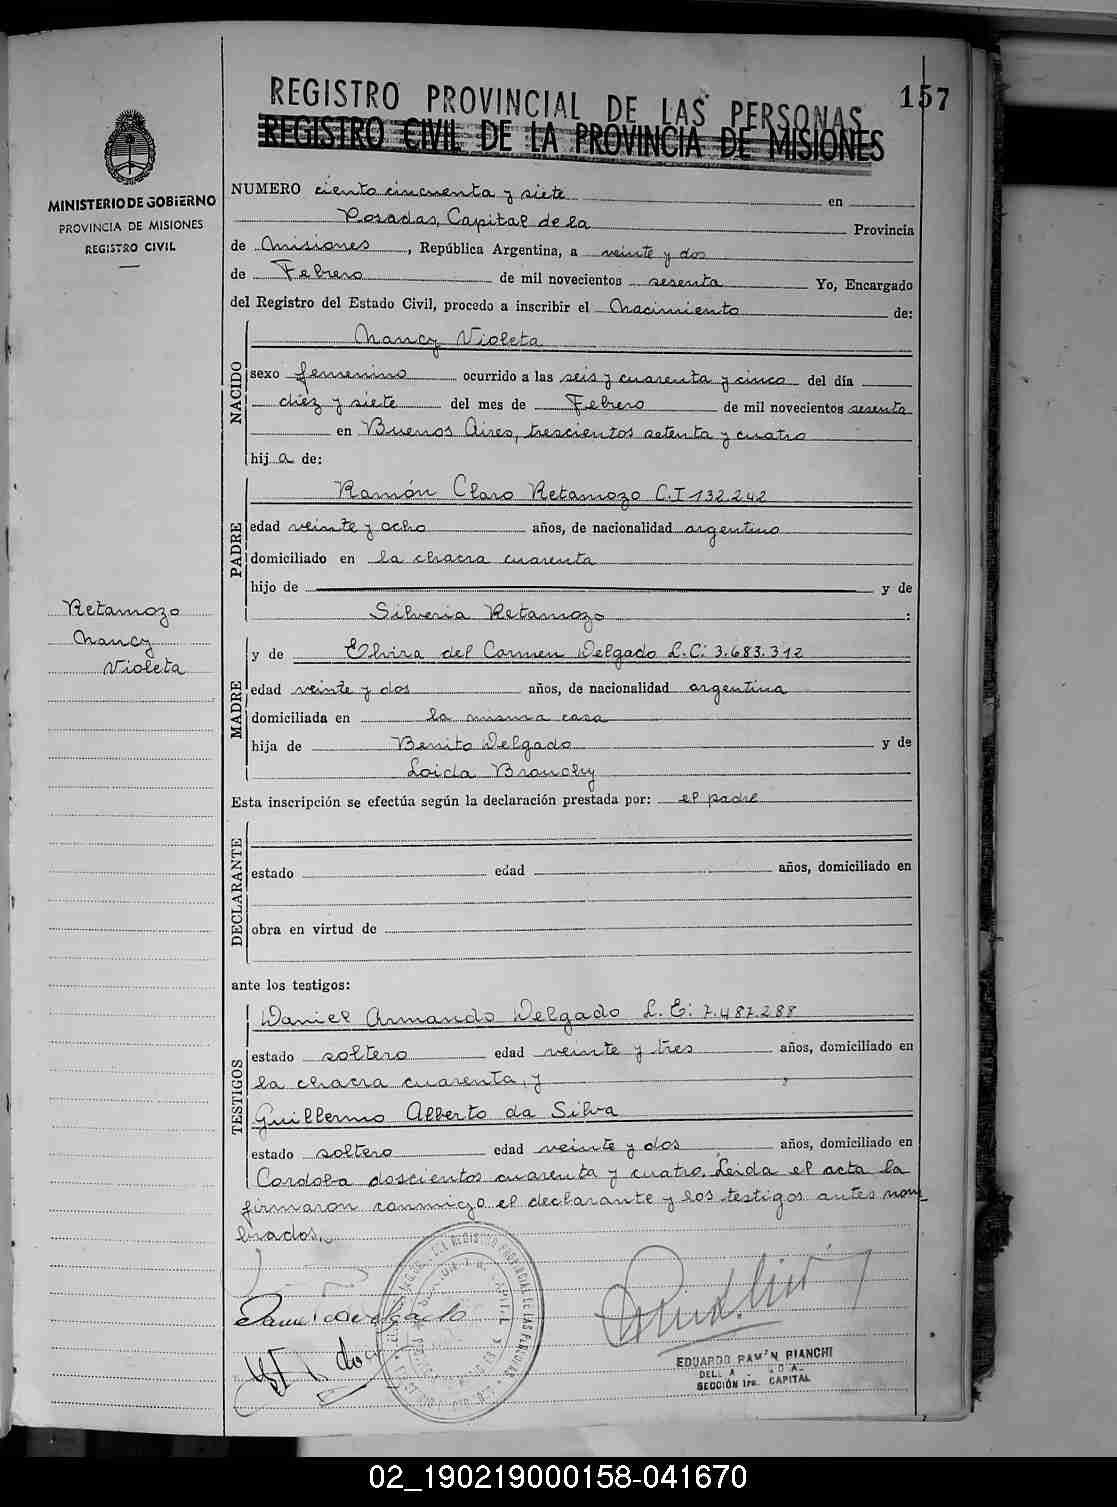 157
REGISTRO PROVINCIAL DE LAS PERSONAS
REGISTRO CIVIL DE LA PROVINCIA DE MISIONES
MINISTERIO DE GOBIERNO
PROVINCIA DE MISIONES
REGISTRO CIVIL
NUMERO ciento cincuenta y siete en
Posadas, Capital de la Provincia
de Misiones, República Argentina, a veinte y dos
de Febrero de mil novecientos sesenta Yo, Encargado
del Registro del Estado Civil, procedo a inscribir el Nacimiento de:
NACIDO
Nancy Violeta
sexo femenino ocurrido a las seis y cuarenta y cinco del día
diez y siete del mes de Febrero de mil novecientos sesenta
en Buenos Aires, trescientos setenta y cuatro
hija de:
PADRE
Ramón Claro Retamozo C.I 132.242
edad veinte y ocho años, de nacionalidad argentino
domiciliado en la chacra cuarenta
hijo de y de
Silveria Retamozo :
Retamozo
Nancy
Violeta
MADRE
y de Elvira del Carmen Delgado L.C: 3.683.312
edad veinte y dos años, de nacionalidad argentina
domiciliada en la misma casa
hija de Benito Delgado y de
Loida Brouchy
Esta inscripción se efectúa según la declaración prestada por: el padre
DECLARANTE
estado edad años, domiciliado en
obra en virtud de
ante los testigos:
TESTIGOS
Daniel Armando Delgado L.E: 7.487.288
estado soltero edad veinte y tres años, domiciliado en
la chacra cuarenta, y ,
Guillermo Alberto da Silva
estado soltero edad veinte y dos años, domiciliado en
Cordoba doscientos cuarenta y cuatro. Leida el acta la
firmaron conmigo el declarante y los testigos antes nom
brados.
EDUARDO RAMÓN BIANCHI
SECCIÓN 1ra. CAPITAL
02_190219000158-041670